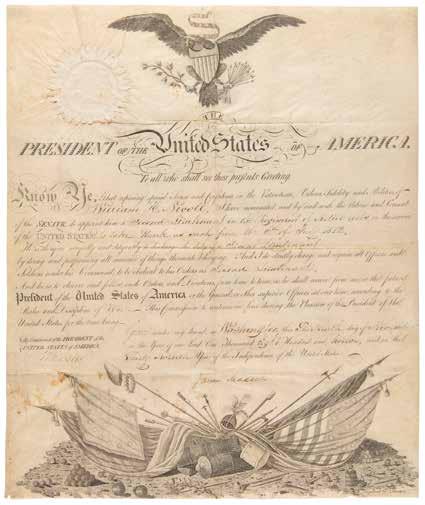 THE
PRESIDENT OF THE United States OF AMERICA.
To all who shall see these presents Greeting
Know Ye, that reposing special Trust and Confidence in the Patriotism, Valour, Fidelity and Abilities of
William C. I have nominated, and by and with the Advice and Consent
of the SENATE do appoint him Second Lieutenant in the Regiment of in the service
of the UNITED STATES: to take Rank as such from the of 1812.
He is therefore carefully and diligently to discharge the duty of Second Lieutenant
by doing and performing all manner of things thereunto belonging. And I do strictly charge and require all Officers and
Soldiers under his Command, to be obedient to his Orders as Second Lieutenant.
And he is to observe and follow such Orders and Directions, from time to time, as he shall receive from me or the future
President of the United States of America or the General or other superior Officers set over him, according to the
Rules and Discipline of War. This Commission to continue in force during the Pleasure of the President of the
United States for the time being.
Given under my hand, at Washington this day of
By Command of the PRESIDENT of the in the Year of our Lord One Thousand Eight Hundred and and in the
UNITED STATES of AMERICA. Year of the Independence of the United States.
James Madison